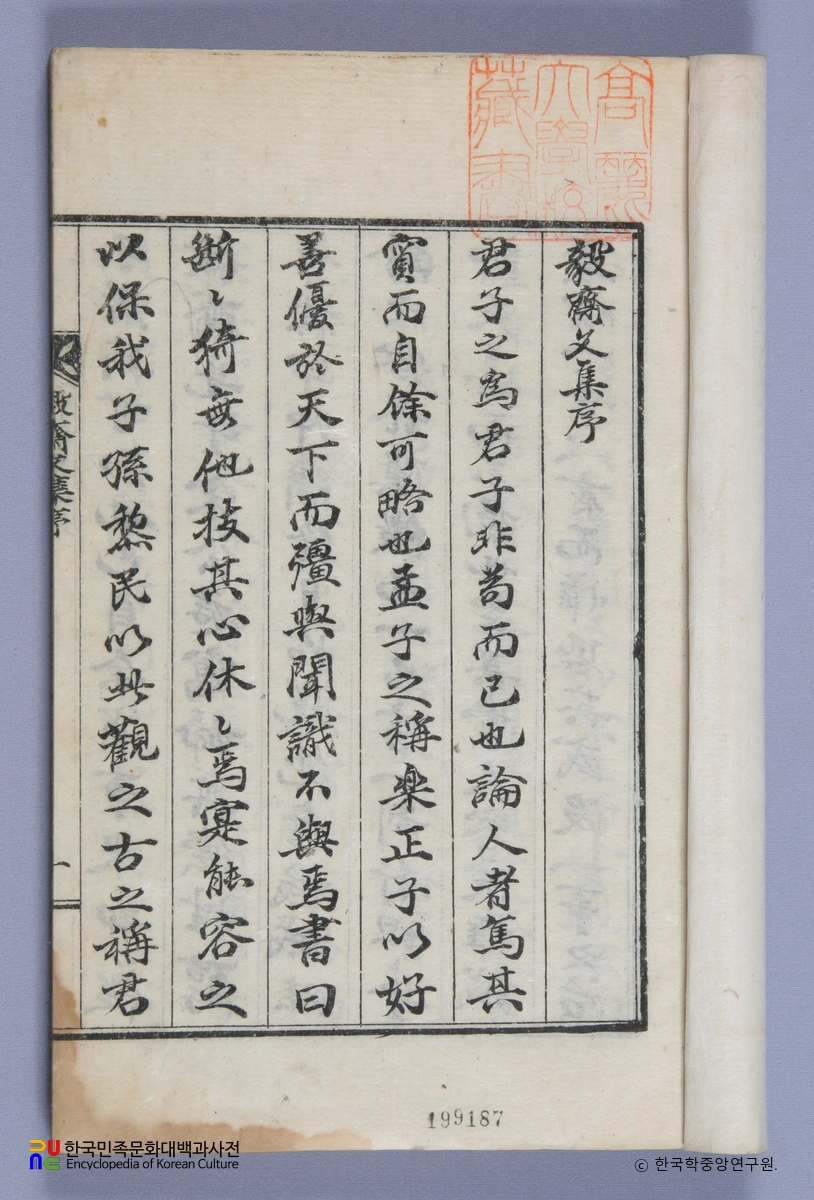 高麗
大學校
藏書
毅齋文集序
君子之爲君子非苟而已也論人者篤其
實而自餘可略也孟子之稱樂正子以好
善優於天下而彊與聞識不與焉書曰
斷〻猗無他技其心休〻焉寔能容之
以保我子孫黎民以此觀之古之稱君
毅齋文集序
一
199187
한국민족문화대백과사전
Encyclopedia of Korean Culture
© 한국학중앙연구원.